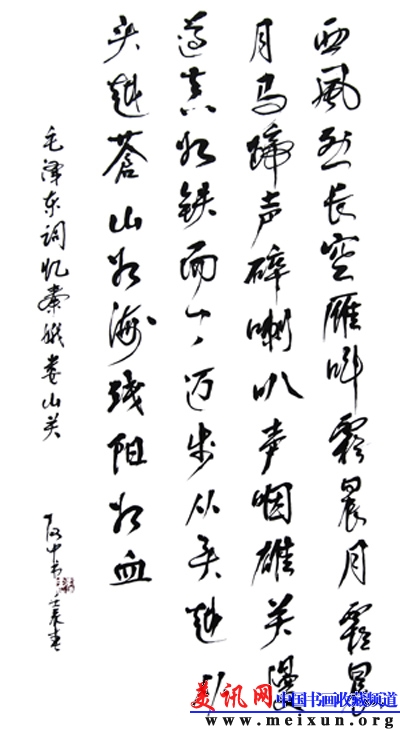 西风烈长空雁叫霜晨月霜晨
月马蹄声碎喇叭声咽雄关漫
道真如铁而今迈步从头越从
头越苍山如海残阳如血
毛泽东词忆秦娥娄山关
中书
美讯网 中国书画收藏频道
www.meixun.org